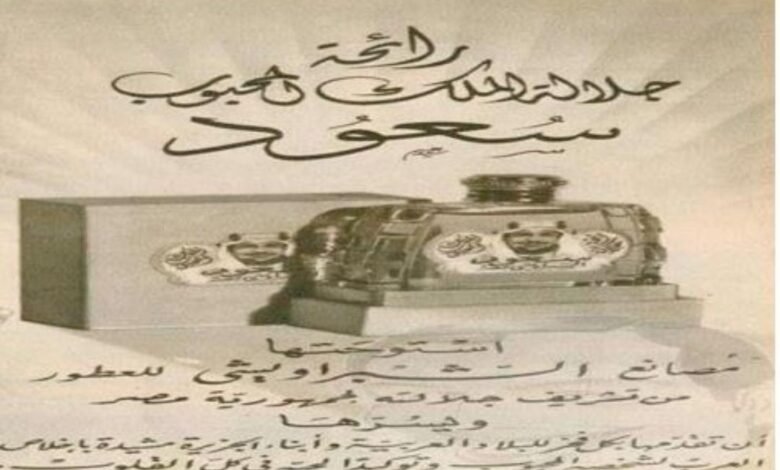 رائحة
جلالة الملك المحبوب
سعود
استوحتها
مصانع الشبراويشي للعطور
من تشريف جلالته جمهورية مصر
ويسرها
أن تقدمها بكل فخر للبلاد العربية وأبناء الجزيرة مشيدة بإخلاص